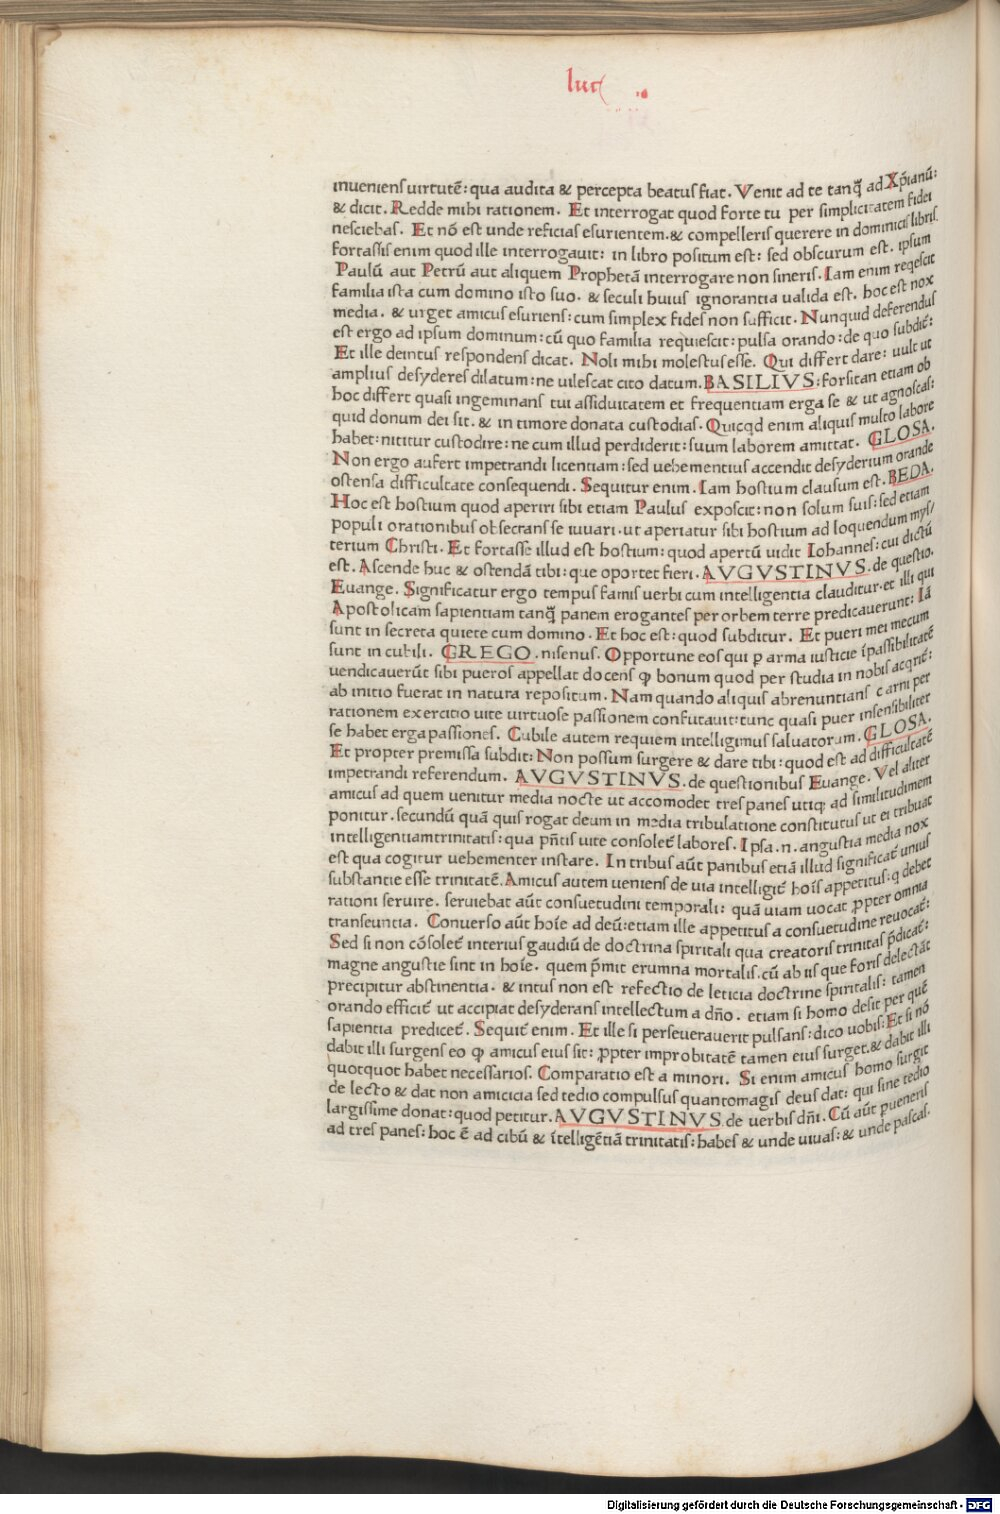 luc
inueniens uirtutē: qua audita & percepta beatus fiat. Venit ad te tanq̃ ad Xp̄ianū:
& dicit. Redde mihi rationem. Et interrogat quod forte tu per simplicitatem fidei
nesciebas. Et nō est unde reficias esurientem. & compelleris querere in dominicis libris.
fortassis enim quod ille interrogauit: in libro positum est: sed obscurum est. ipsum
Paulū aut Petrū aut aliquem Prophetā interrogare non sineris. Iam enim reqescit
familia ista cum domino isto suo. & seculi huius ignorantia ualida est. hoc est nox
media. & urget amicus esuriens: cum simplex fides non sufficit. Nunquid deferendus
est ergo ad ipsum dominum: cū quo familia requiescit: pulsa orando: de quo subdit̄:
Et ille deintus respondens dicat. Noli mihi molestus esse. Qui differt dare: uult ut
amplius desyderes dilatum: ne uilescat cito datum. BASILIVS: forsitan etiam ob
hoc differt quasi ingeminans tui assiduitatem et frequentiam erga se & ut agnoscas:
quid donum dei sit. & in timore donata custodias. Quicqd enim aliquis multo labore
habet: nititur custodire: ne cum illud perdiderit: suum laborem amittat. GLOSA.
Non ergo aufert impetrandi licentiam: sed uehementius accendit desyderium orande
ostensa difficultate consequendi. Sequitur enim. Iam hostium clausum est. BEDA.
Hoc est hostium quod aperiri sibi etiam Paulus exposcit: non solum suis: sed etiam
populi orationibus obsecrans se iuuari. ut aperiatur sibi hostium ad loquendum mys/
terium Christi. Et fortasse illud est hostium: quod apertū uidit Iohannes: cui dictū
est. Ascende huc & ostendā tibi: que oportet fieri. AVGVSTINVS. de questio.
Euange. Significatur ergo tempus famis uerbi cum intelligentia clauditur. et illi qui
Apostolicam sapientiam tanq̃ panem erogantes per orbem terre predicauerunt: Iā
sunt in secreta quiete cum domino. Et hoc est: quod subditur. Et pueri mei mecum
sunt in cubili. GREGO. nisenus. Opportune eos qui ꝑ arma iusticie īpassibilitatē
uendicauerūt sibi pueros appellat docens ꝙ bonum quod per studia in nobis acqrit̄:
ab initio fuerat in natura repositum. Nam quando aliquis abrenuntians carni per
rationem exercitio uite uirtuose passionem confutauit: tunc quasi puer insensibiliter
se habet erga passiones. Cubile autem requiem intelligimus saluatorum. GLOSA.
Et propter premissa subdit: Non possum surgere & dare tibi: quod est ad difficultatē
impetrandi referendum. AVGVSTINVS. de questionibus Euange. Vel aliter
amicus ad quem uenitur media nocte ut accomodet tres panes utiq; ad similitudinem
ponitur. secundū quā quis rogat deum in media tribulatione constitutus ut ei tribuat
intelligentiam trinitatis: qua pn̄tis uite consolet̄ labores. Ipsa .n. angustia media nox
est qua cogitur uehementer instare. In tribus aūt panibus etiā illud significat̄ unius
substantie esse trinitatē. Amicus autem ueniens de uia intelligit̄ hoīs appetitus: q debet
rationi seruire. seruiebat aūt consuetudini temporali: quā uiam uocat ꝓpter omnia
transeuntia. Conuerso aūt hoīe ad deū: etiam ille appetitus a consuetudine reuocat̄:
Sed si non cōsolet̄ interius gaudiū de doctrina spiritali qua creatoris trinitas p̄dicat̄:
magne angustie sint in hoīe. quem p̄mit erumna mortalis. cū ab iis que foris delectāt
precipitur abstinentia. & intus non est refectio de leticia doctrine spiritalis: tamen
orando efficit̄ ut accipiat desyderans intellectum a dn̄o. etiam si homo desit per quē
sapientia predicet̄. Sequit̄ enim. Et ille si perseuerauerit pulsans: dico uobis: Et si nō
dabit illi surgens eo ꝙ amicus eius sit: ꝓpter improbitatē tamen eius surget. & dabit illi
quotquot habet necessarios. Comparatio est a minori. Si enim amicus homo surgit
de lecto & dat non amicicia sed tedio compulsus quantomagis deus dat: qui sine tedio
largissime donat: quod petitur. AVGVSTINVS. de uerbis dn̄i. Cū aūt pueneris
ad tres panes: hoc ē ad cibū & ītelligētiā trinitatis: habes & unde uiuas: & unde pascas.
Digitalisierung gefördert durch die Deutsche Forschungsgemeinschaft - DFG